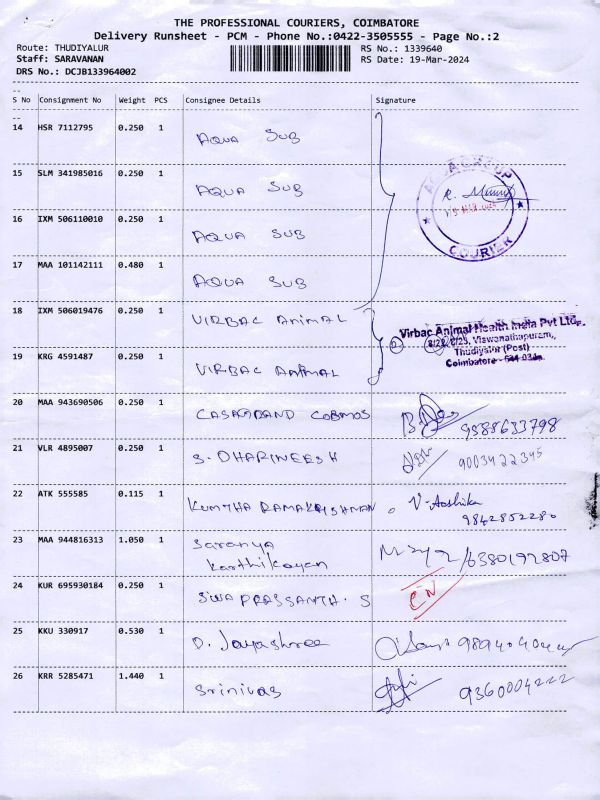 THE PROFESSIONAL COURIERS, COIMBATORE
Delivery Runsheet - PCM - Phone No.:0422-3505555 - Page No.:2
Route: THUDIYALUR RS No.: 1339640
Staff: SARAVANAN RS Date: 19-Mar-2024
DRS No.: DCJB133964002
S No Consignment No Weight PCS Consignee Details Signature
14 HSR 7112795 0.250 1 AQUA SUB
15 SLM 341985016 0.250 1 AQUA SUB
AQUA GROUP
COURIER
16 IXM 506110010 0.250 1 AQUA SUB
17 MAA 101142111 0.480 1 AQUA SUB
18 IXM 506019476 0.250 1 VIRBAC Animal
Virbac Animal Health India Pvt Ltd.
Viswanathapuram,
Thudiyalur (Post)
Coimbatore -
19 KRG 4591487 0.250 1 VIRBAC ANIMAL
20 MAA 943690506 0.250 1 CASAGRAND COSMOS 9588633798
21 VLR 4895007 0.250 1 S. DHARINEESH 9003422345
22 ATK 555585 0.115 1 KUMTHA RAMAKRISHMAN V. Aoshika
9842852280
23 MAA 944816313 1.050 1 Saranya
Karthikayan 6380197807
24 KUR 695930184 0.250 1 SIVA PRASSANTH. S CN
25 KKU 330917 0.530 1 D. Jayashree
26 KRR 5285471 1.440 1 Srinivas 9360004222